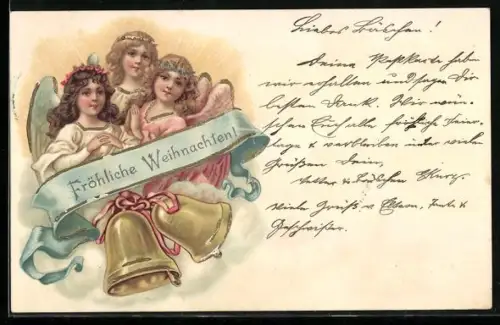 Fröhliche Weihnachten!
Liebes Bäschen!
Deine Postkarte haben
wir erhalten und sagen Dir
besten Dank. Wir wün-
schen Euch alle fröhliche Feier-
tage & verbleiben unter vielen
Grüßen Dein
Vetter & Bäschen
Viele Grüße v. Eltern, Tante &
Geschwister.